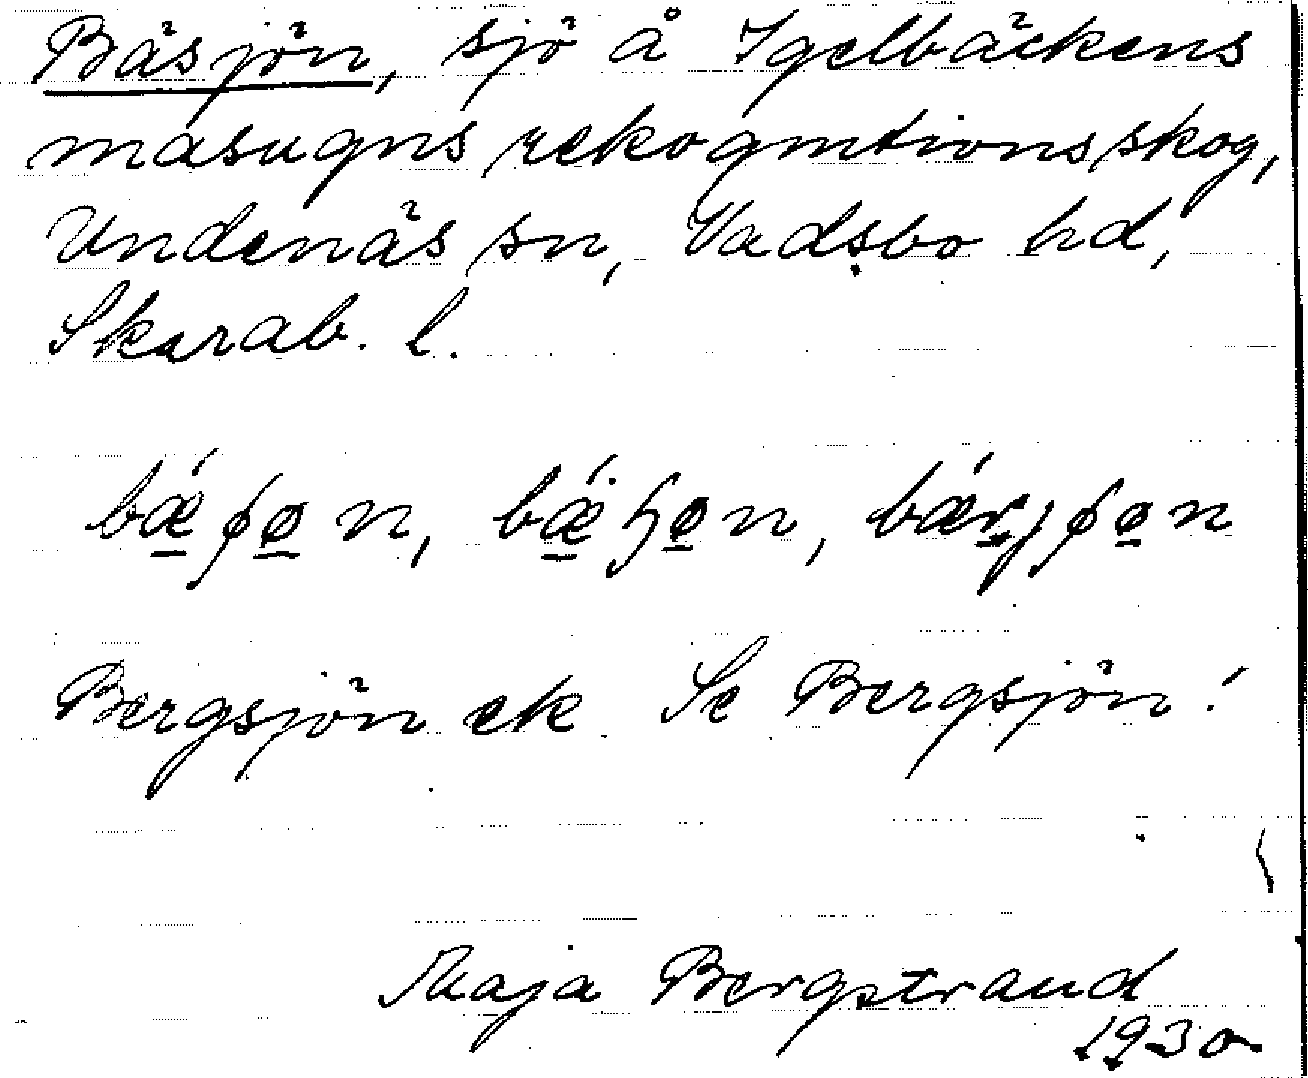 Bäsjön, sjö å Igelbäckens
masugns rekognitionsskog,
Undenäs sn, Vadsbo hd,
Skarab. l.
Bergsjön ek. Se Bergsjön!
Maja Bergstrand
1930